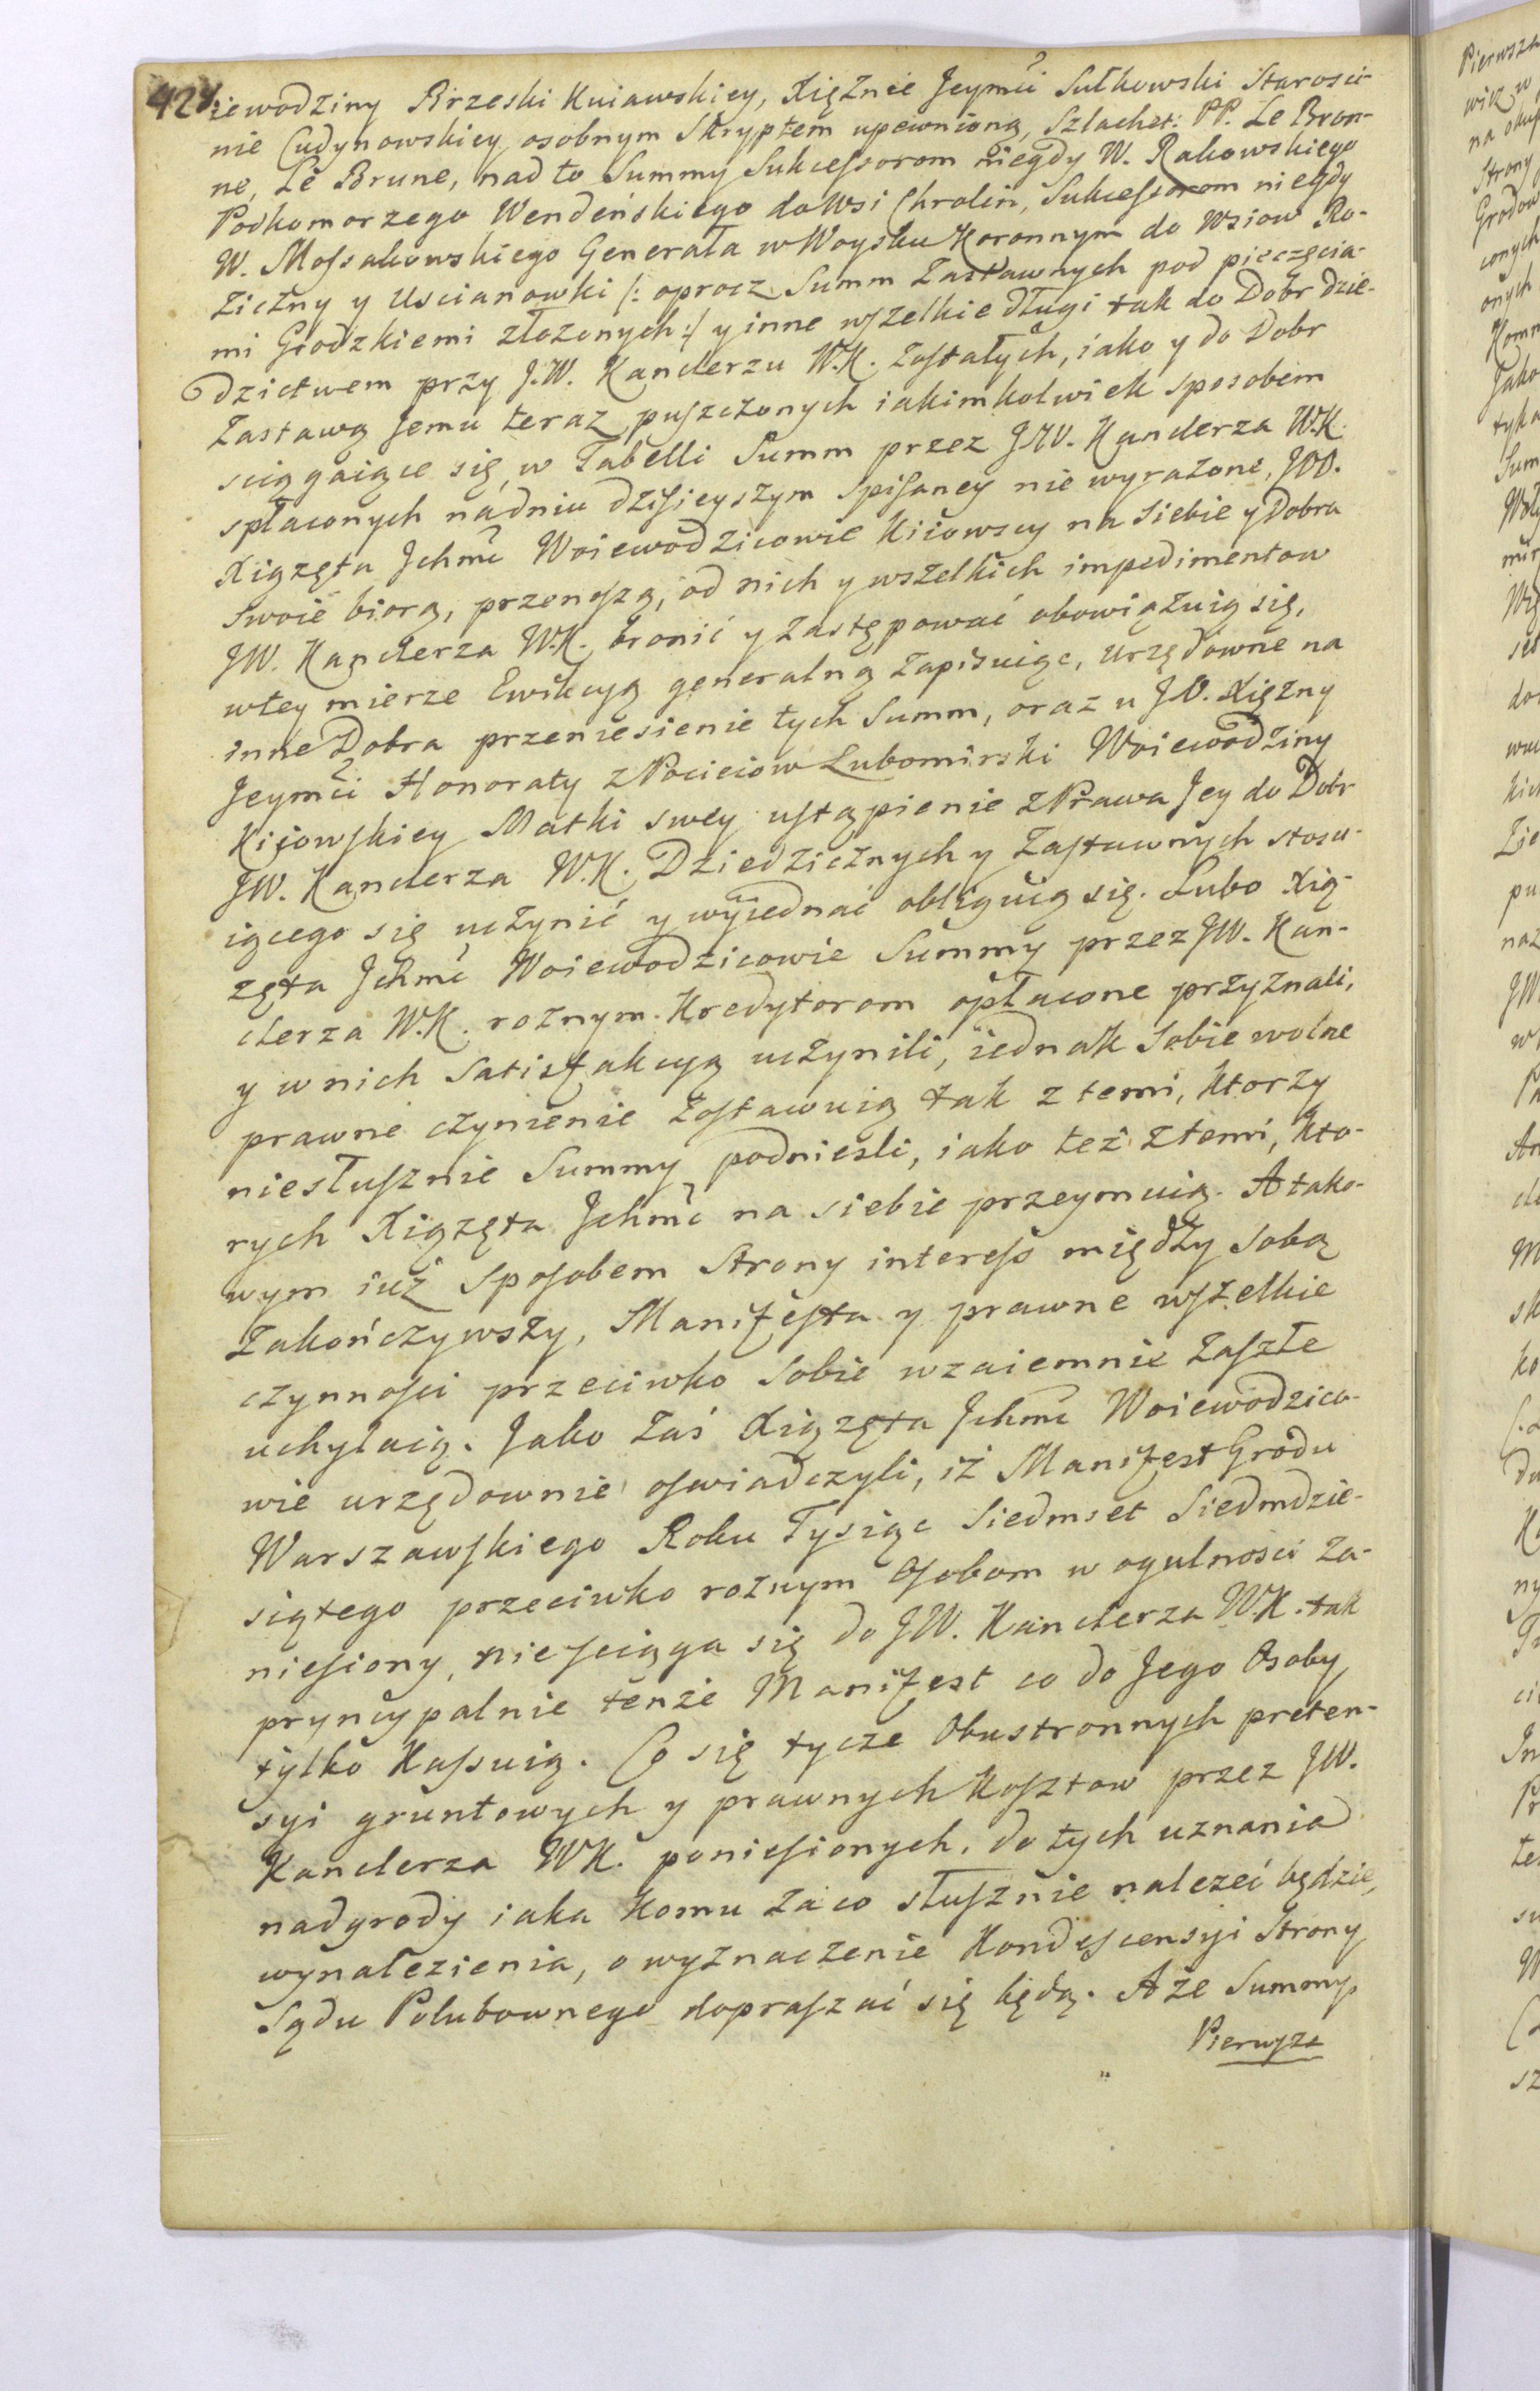 424
iewodziny Brzeski Kuiawskiey, Xiężnie Jeymći Sułkowski Starości-
nie Cudynowskiey osobnym Skryptem upewnioną, Szlachet: PP. Le Bron-
ne, Le Brune, nad to Summy Sukcessorom niegdy W. Rakowskiego
Podkomorzego Wendeńskiego do Wsi Chrolin, Sukcessorom niegdy
W. Mossakowskiego Generała w Woysku Koronnym do Wsiow Ro-
ziczny y Uscianowki /: oprocz Summ Zastawnych pod pieczęcia-
mi Grodzkiemi złozonych :/ y inne wszelkie długi tak do Dobr dzie-
dzictwem przy J.W. Kanclerzu W.K. zostałych, iako y do Dobr
Zastawą Jemu teraz puszczonych iakimkolwiek sposobem
sciągaiące się, w Tabelli Summ przez JW. Kanclerza W.K.
spłaconych na dniu dzisieyszym spisaney nie wyrażone, JOO.
Xiążęta Jchmć Woiewodzicowie Kiiowscy na siebie y Dobra
swoie biorą, przenoszą, od nich y wszelkich impedimentow
JW. Kanclerza W.K. bronić y zastępować obowiązuią się,
w tey mierze Ewikcyą generalną zapisuiąc, urzędowne na
inne Dobra przeniesienie tych Summ, oraz u J.O. Xiężny
Jeymći Honoraty z Pociciow Lubomirski Woiewodziny
Kiiowskiey Matki swey ustąpienie z Prawa Jey do Dobr
JW. Kanclerza W.K. Dziedzicznych y Zastawnych stosu-
iącego się uczynić y wyiednać obliguią się. Lubo Xią-
zęta Jchmć Woiewodzicowie Summy przez JW. Kan-
clerza W.K. roznym Kredytorom opłacone przyznali,
y w nich Satisfakcyą uczynili, iednak sobie wolne
prawne czynienie zostawuią tak z temi, ktorzy
niesłusznie Summy podniesli, iako też z temi, kto-
rych Xiążęta Jchmć na siebie przeymuią. A tako-
wym iuż sposobem Strony interess między sobą
zakończywszy, Manifesta y prawne wszelkie
czynności przeciwko sobie wzaiemnie zaszłe
uchylaią. Jako zaś Xiążęta Jchmć Woiewodzico-
wie urzędownie oswiadczyli, iż Manifest Grodu
Warszawskiego Roku Tysiąc Siedmset Siedmdzie-
siątego przeciwko roznym Osobom w ogulności za-
niesiony, nie sciąga się do JW. Kanclerza W.K. tak
pryncypalnie tenże Manifest co do Jego Osoby
tylko Kassuią. Co się tycze Obustronnych preten-
syi gruntowych y prawnych Kosztow przez JW.
Kanclerza WK. poniesionych, do tych uznania
nadgrody iaka Komu za co słusznie nalezeć będzie,
wynalezienia, o wyznaczenie Kondescensyi Strony
Sądu Polubownego dopraszać się będą. A że Summy
Pierwsza